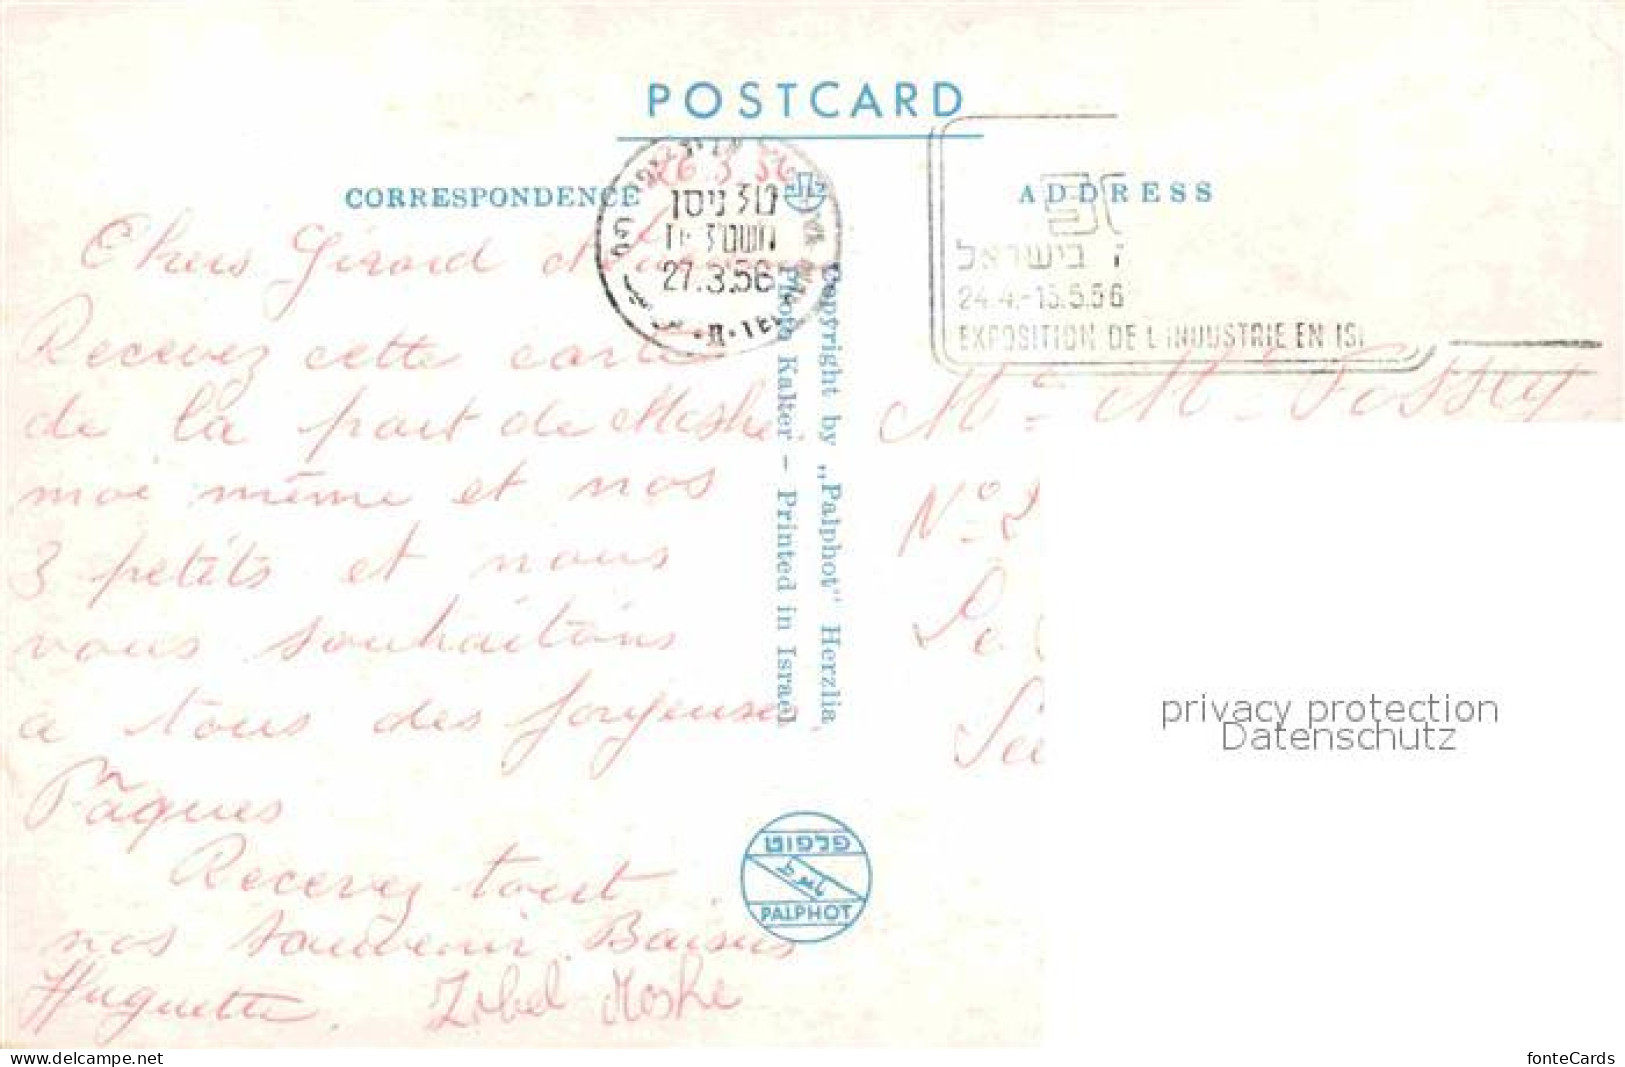 POSTCARD
CORRESPONDENCE
ADDRESS
26.3.56
27.3.56
בישראל
24.4.-15.5.56
EXPOSITION DE L'INDUSTRIE EN IS
Chers Girard
Recevez cette carte
de la part de Moshe
moi même et nos
3 petits et nous
vous souhaitons
a tous des joyeuses
Pâques
Recevez tout
nos souvenir. Baisers
Huguette. Moshe
Copyright by „Palphot" Herzlia,
Photo Kalter - Printed in Israel
פלפוט
PALPHOT
Mr Mme
No 2
privacy protection
Datenschutz
www.delcampe.net
fonteCards